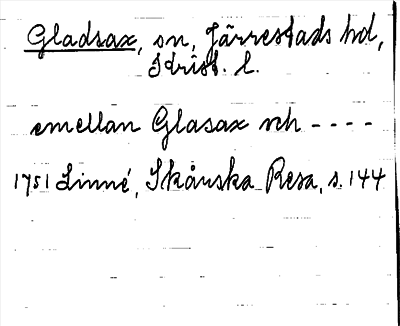 Gladsax, sn, Järrestads hd,
Krist. l.
emellan Glasax och - - - -
1751 Linné, Skånska Resa, s. 144